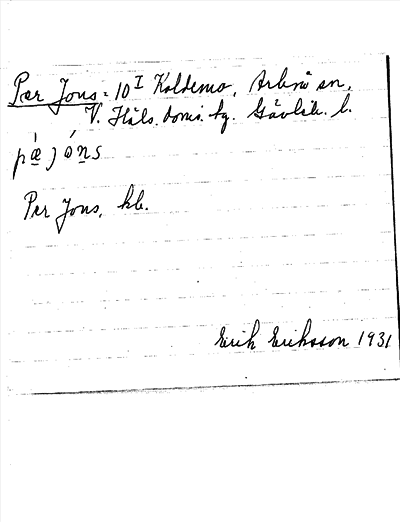 Per Jons = 10 I Koldemo, Arbrå sn,
V. Häls. doms. hg. Gävleb. l.
pæ̀ jó̀ns
Per Jons, kb.
Erik Eriksson 1931